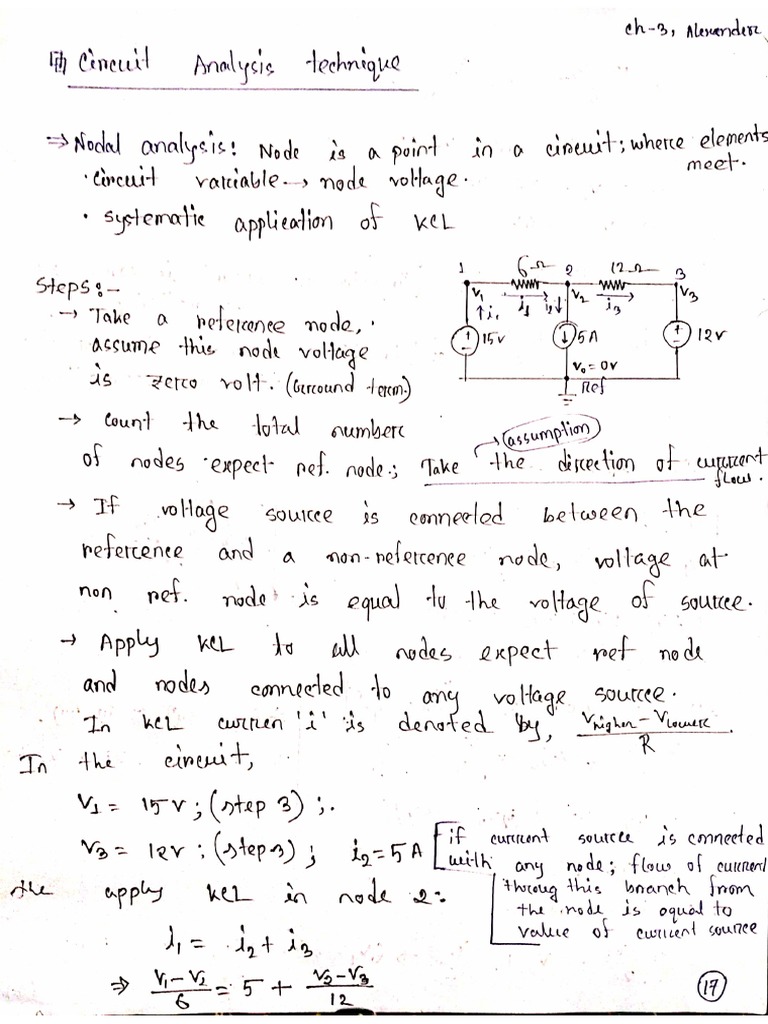 ch-3, Alexander
Circuit Analysis technique
⇒ Nodal analysis: Node is a point in a circuit; where elements meet.
• circuit variable → node voltage.
• systematic application of KCL
Steps:-
→ Take a reference node,
assume this node voltage
is zero volt. (Ground term.)
→ count the total number
of nodes expect ref. node; Take the direction of current flow.
(assumption)
1 6Ω 2 12Ω 3
V₁ i₁ i₂ V₂ i₃ V₃
i₁ 15V 5A 12V
V₀ = 0V
Ref
→ If voltage source is connected between the
reference and a non-reference node, voltage at
non ref. node is equal to the voltage of source.
→ Apply KCL to all nodes expect ref node
and nodes connected to any voltage source.
In KCL curren 'i' is denoted by, (Vhigher - Vlower)/R
In the circuit,
V₁ = 15V; (step 3);.
V₃ = 12V; (step 3); i₂ = 5A
[if current source is connected
with any node; flow of current
throug this branch from
the node is equal to
value of current source
the apply KCL in node 2:
i₁ = i₂ + i₃
⇒ (V₁-V₂)/6 = 5 + (V₂-V₃)/12
17